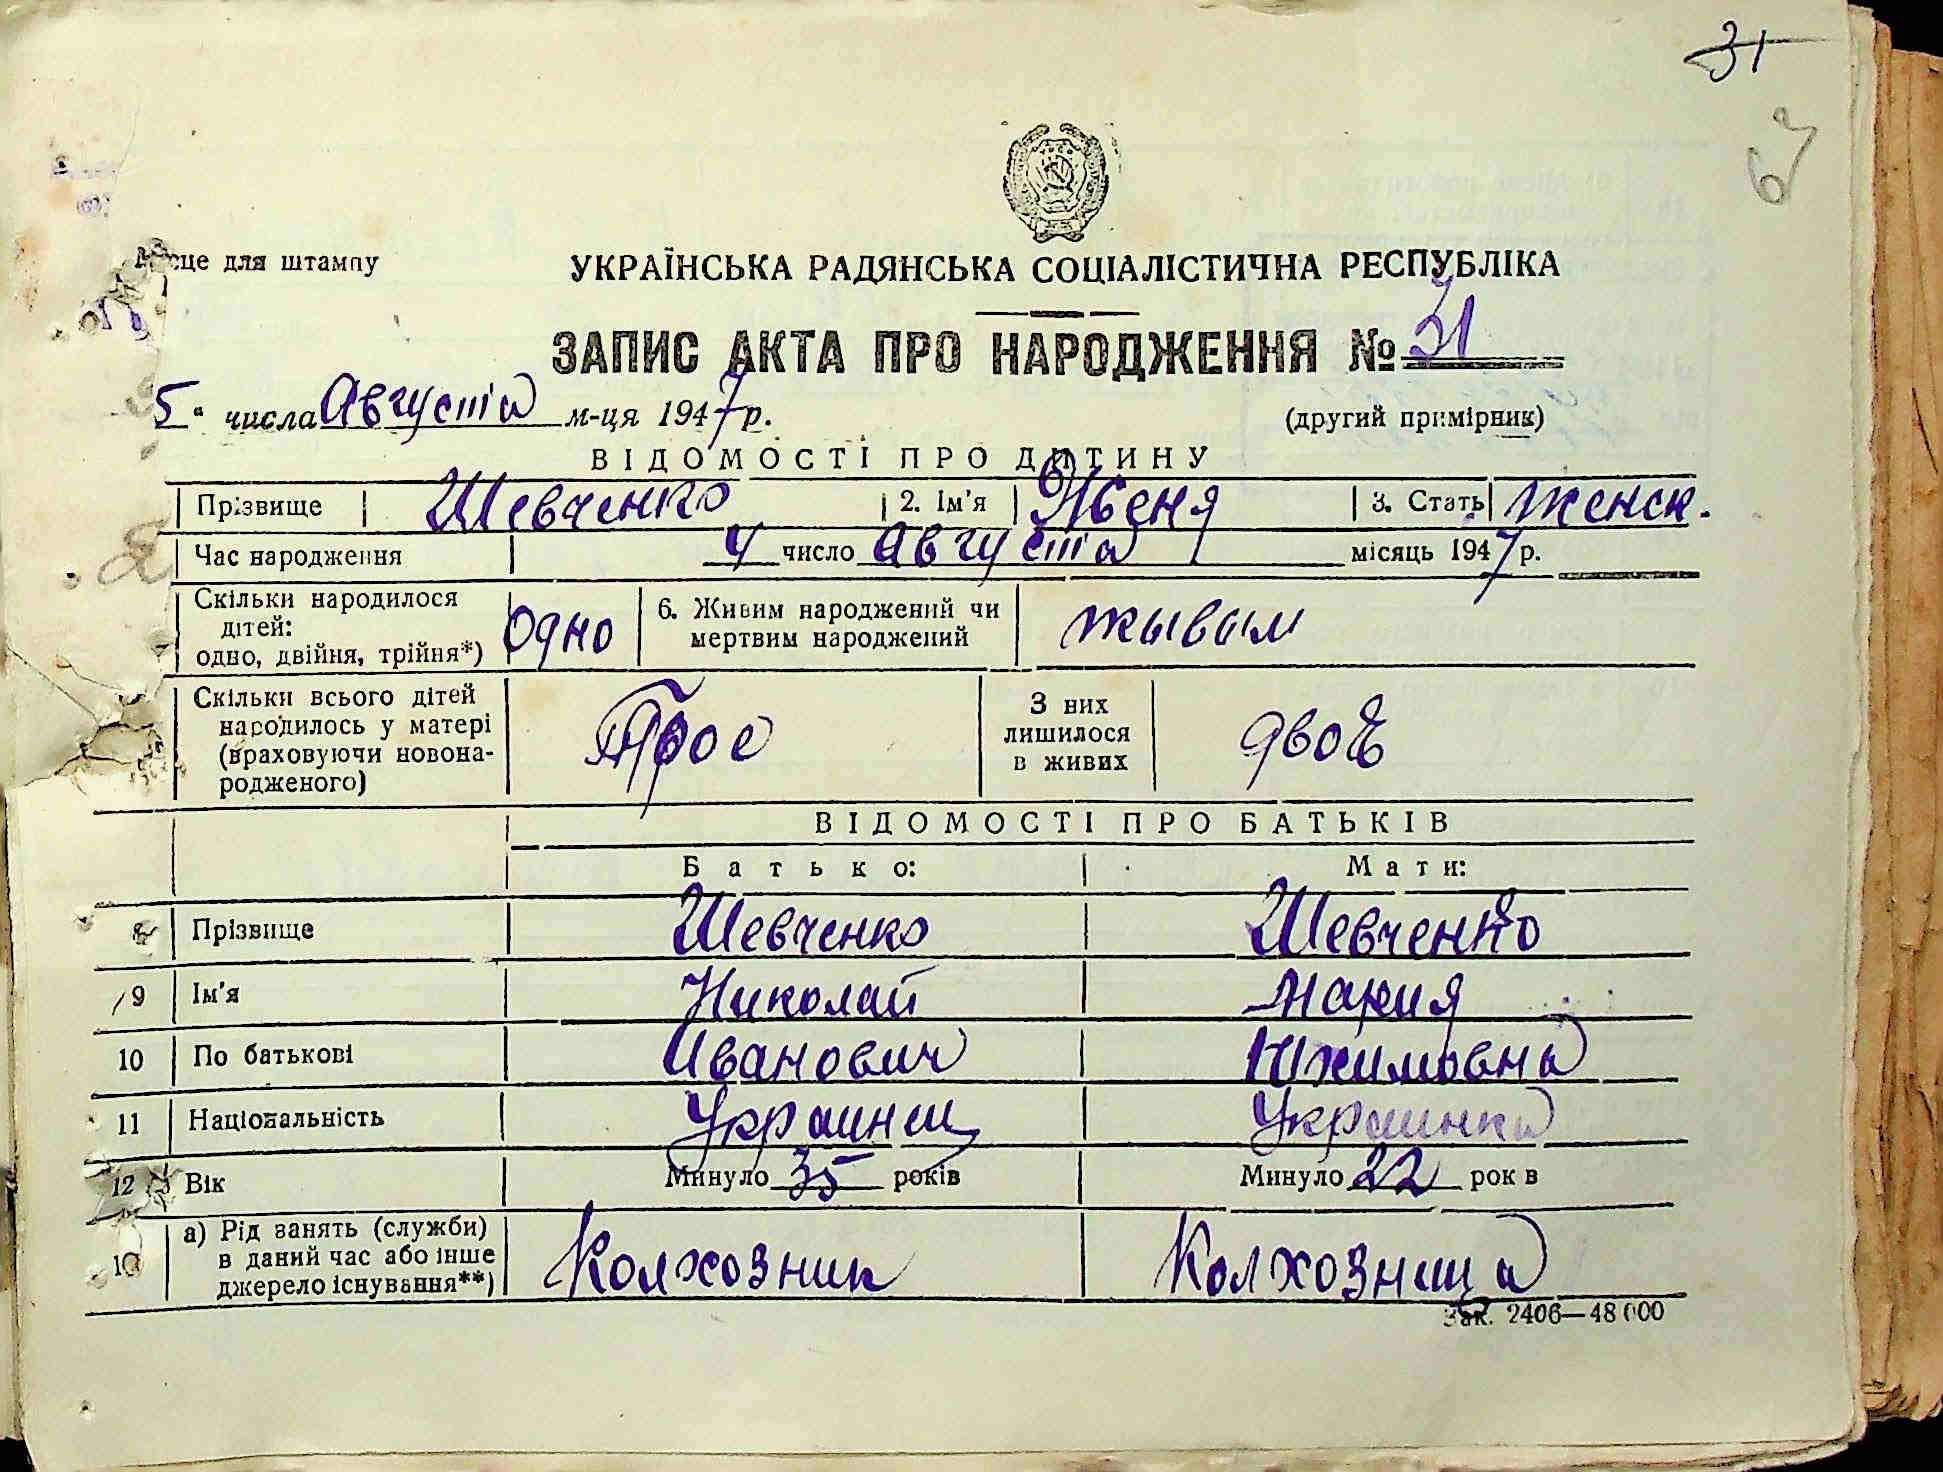 31
67
Місце для штампу
УКРАЇНСЬКА РАДЯНСЬКА СОЦІАЛІСТИЧНА РЕСПУБЛІКА
ЗАПИС АКТА ПРО НАРОДЖЕННЯ № 31
5 " числа Августа м-ця 1947 р.
(другий примірник)
ВІДОМОСТІ ПРО ДИТИНУ
Прізвище Шевченко 2. Ім'я Женя 3. Стать женск.
Час народження 4 число Августа місяць 1947 р.
Скільки народилося дітей: одно, двійня, трійня*) Одно 6. Живим народжений чи мертвим народжений жывым
Скільки всього дітей народилось у матері (враховуючи новонародженого) Трое З них лишилося в живих двоє
ВІДОМОСТІ ПРО БАТЬКІВ
Батько: Мати:
8 Прізвище Шевченко Шевченко
9 Ім'я Николай Мария
10 По батькові Иванович Юхимовна
11 Національність Украинец Украинка
12 Вік Минуло 35 років Минуло 22 рок в
13 а) Рід занять (служби) в даний час або інше джерело існування**) Колхозник Колхозница
Зак. 2406—48 000